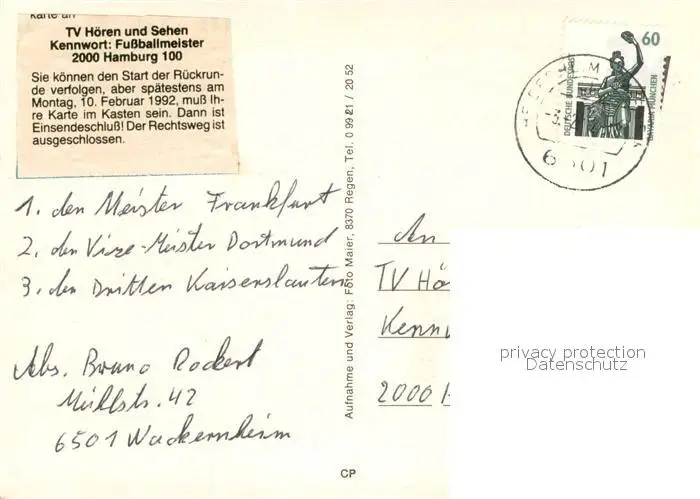 karte an
TV Hören und Sehen
Kennwort: Fußballmeister
2000 Hamburg 100
Sie können den Start der Rückrun-
de verfolgen, aber spätestens am
Montag, 10. Februar 1992, muß Ih-
re Karte im Kasten sein. Dann ist
Einsendeschluß! Der Rechtsweg ist
ausgeschlossen.
1. den Meister Frankfurt
2. den Vize-Meister Dortmund
3. den Dritten Kaiserslautern
Abs. Bruno Rockert
Mühlstr. 42
6501 Wackernheim
Aufnahme und Verlag: Foto Maier, 8370 Regen, Tel. 0 99 21 / 20 52
CP
60
DEUTSCHE BUNDESPOST
BAVARIA MÜNCHEN
6501
An
TV Hö
Kennw
2000 H
privacy protection
Datenschutz